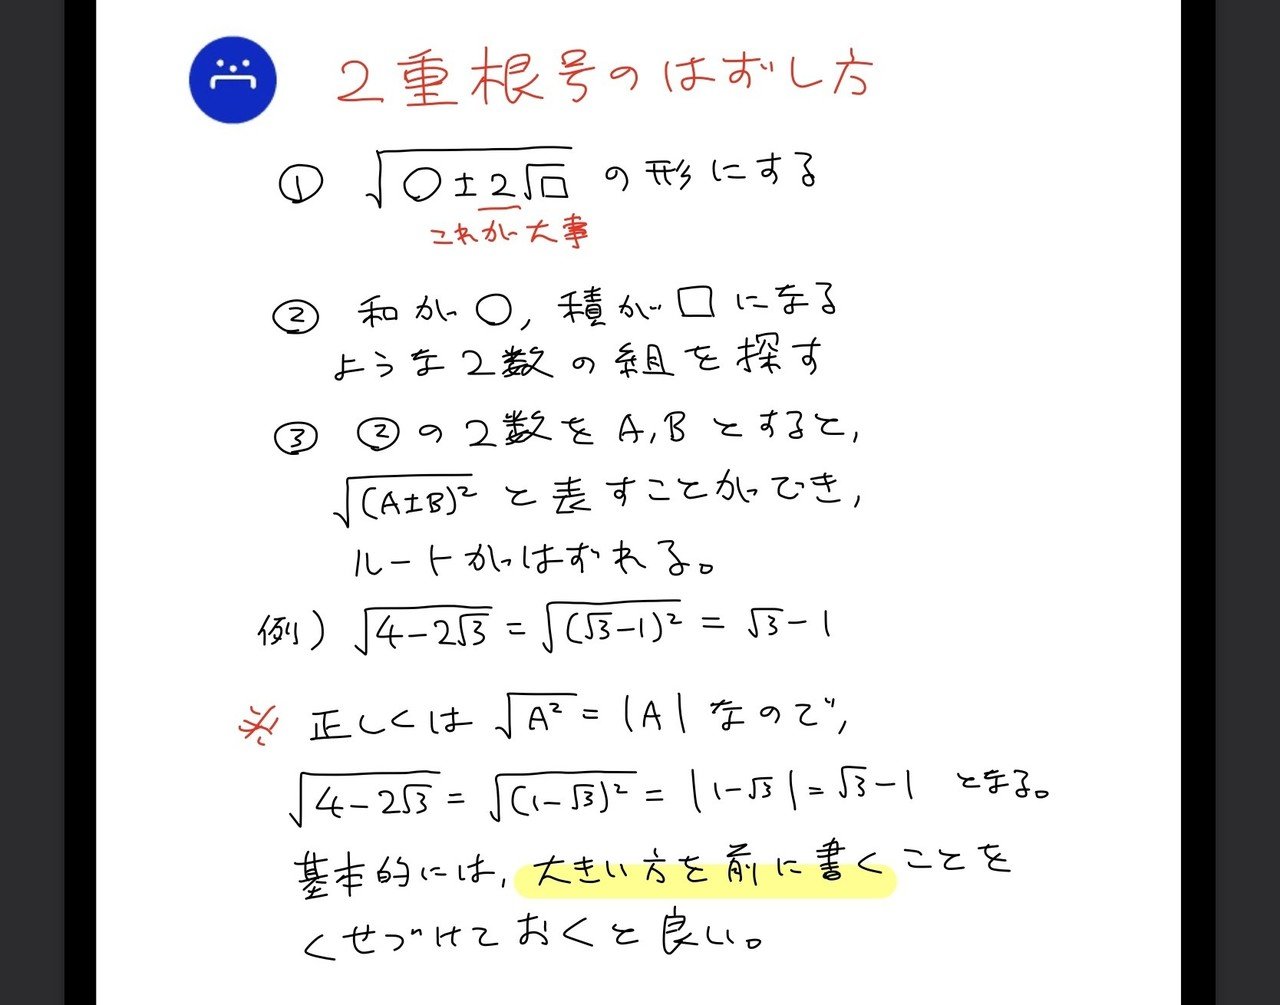 2重根号のはずし方
① √(○±2√□) の形にする
これが大事
② 和が○, 積が□になる
ような2数の組を探す
③ ②の2数をA,Bとすると,
√(A±B)² と表すことができ,
ルートがはずれる。
例) √(4-2√3) = √(√3-1)² = √3-1
※ 正しくは √A² = |A| なので,
√(4-2√3) = √(1-√3)² = |1-√3| = √3-1 となる。
基本的には, 大きい方を前に書くことを
くせづけておくと良い。